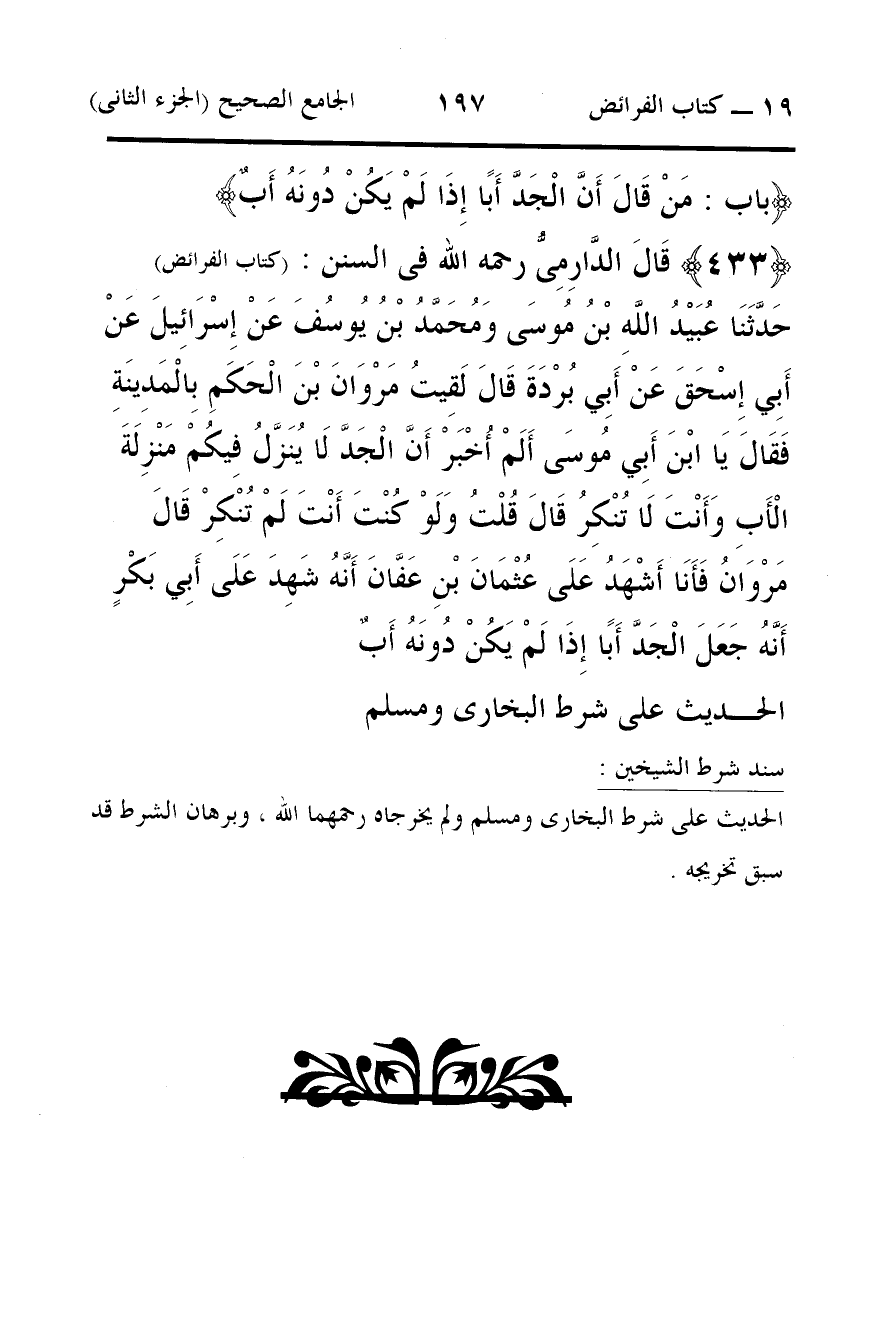 ١٩ ــ كتاب الفرائض ١٩٧ الجامع الصحيح (الجزء الثانى)
﴿باب : مَنْ قَالَ أَنَّ الْجَدَّ أَبًا إِذَا لَمْ يَكُنْ دُونَهُ أَبٌ﴾
﴿٤٣٣﴾ قَالَ الدَّارِمِىُّ رحمه الله فى السنن : (كتاب الفرائض)
حَدَّثَنَا عُبَيْدُ اللَّهِ بْنُ مُوسَى وَمُحَمَّدُ بْنُ يُوسُفَ عَنْ إِسْرَائِيلَ عَنْ
أَبِي إِسْحَقَ عَنْ أَبِي بُرْدَةَ قَالَ لَقِيتُ مَرْوَانَ بْنَ الْحَكَمِ بِالْمَدِينَةِ
فَقَالَ يَا ابْنَ أَبِي مُوسَى أَلَمْ أُخْبَرْ أَنَّ الْجَدَّ لَا يُنَزَّلُ فِيكُمْ مَنْزِلَةَ
الْأَبِ وَأَنْتَ لَا تُنْكِرُ قَالَ قُلْتُ وَلَوْ كُنْتَ أَنْتَ لَمْ تُنْكِرْ قَالَ
مَرْوَانُ فَأَنَا أَشْهَدُ عَلَى عُثْمَانَ بْنِ عَفَّانَ أَنَّهُ شَهِدَ عَلَى أَبِي بَكْرٍ
أَنَّهُ جَعَلَ الْجَدَّ أَبًا إِذَا لَمْ يَكُنْ دُونَهُ أَبٌ
الحـــديث على شرط البخارى ومسلم
سند شرط الشيخين :
الحديث على شرط البخارى ومسلم ولم يخرجاه رحمهما الله ، وبرهان الشرط قد
سبق تخريجه .